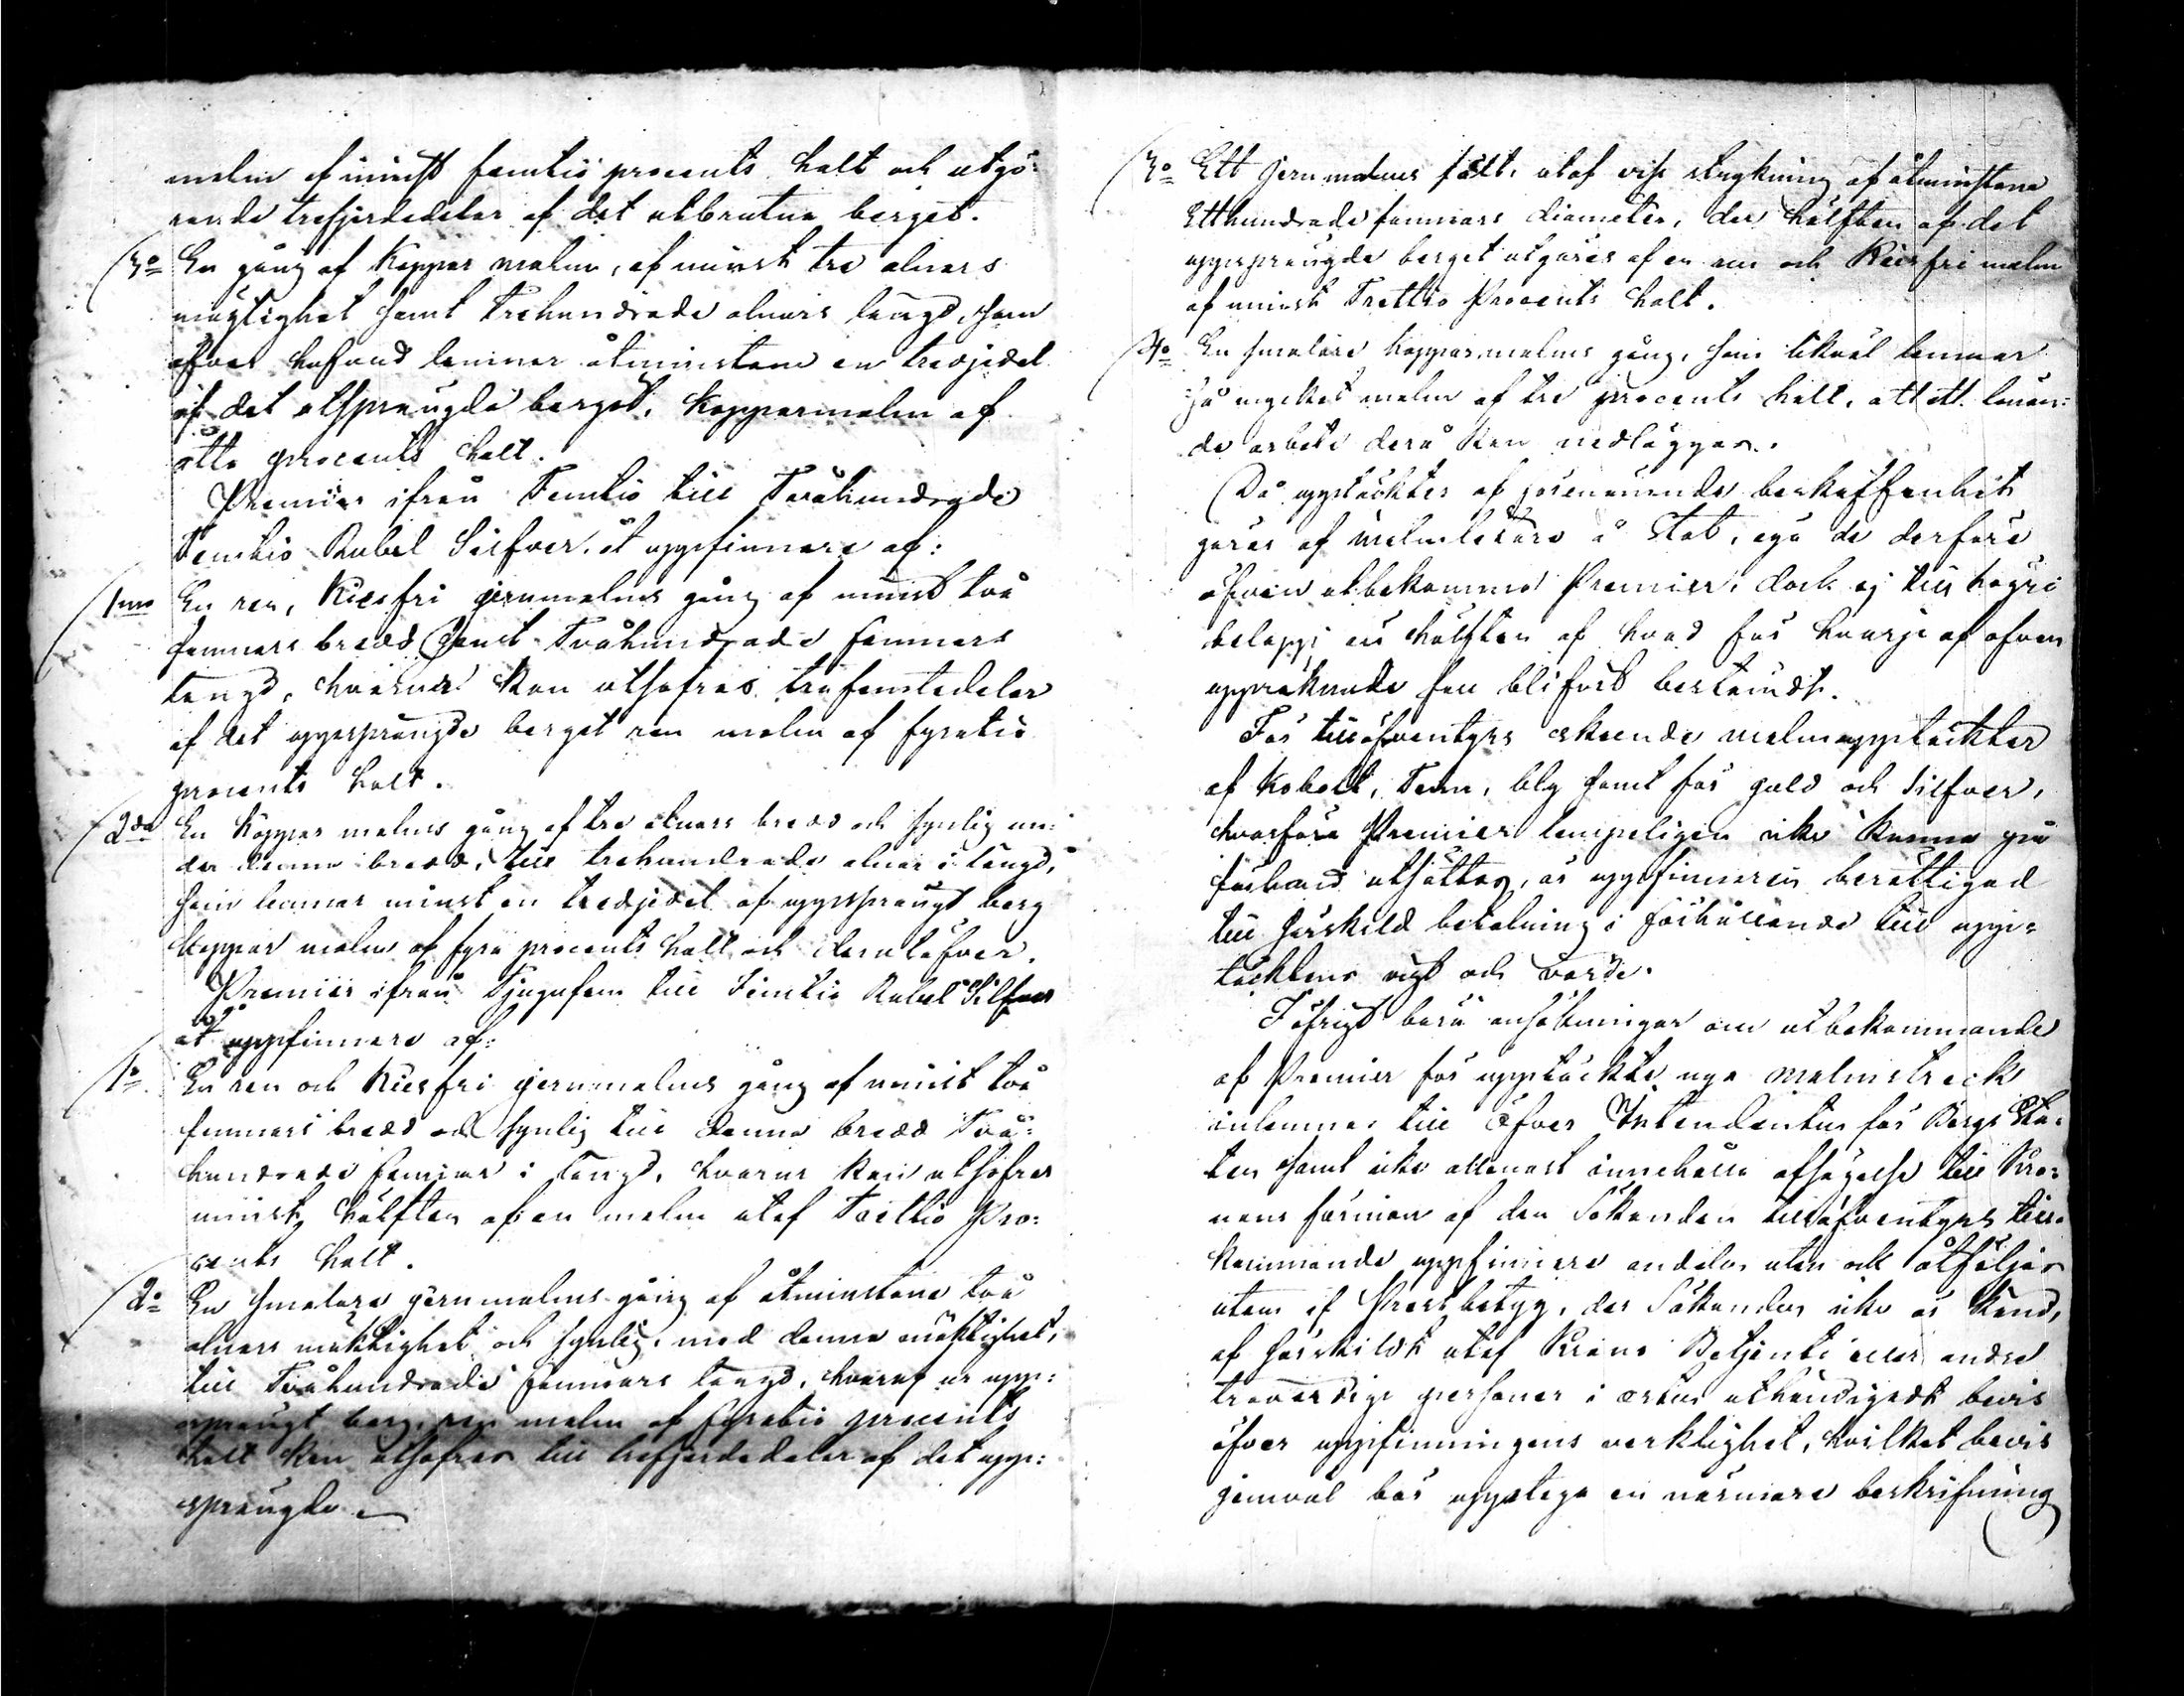 malm af minst femtio procents halt och utgö=
rande trefjerdedelar af det utbrutna berget.
3o En gång af Koppar malm, af minst tre alnars
mägtighet samt Trehundrade alnars längd, som
öfver hufvud lemnar åtminstone en tredjedel
af det utsprängda berget, Kopparmalm af
åtta procents halt.
Premier ifrån Femtio till Tvåhundrade
Femtio Rubel Silfver, åt uppfinnare af:
1mo En ren, Kiesfri jernmalms gång af minst två
famnars bredd samt Tvåhundrade famnars
längd, hvarur kan utsofras trefemtedelar
af det uppsprängde berget ren malm af fyratio
procents halt.
2do En Koppar malms gång af tre alnars bredd och synlig un=
der denna bredd, till trehundrade alnar i längd,
som lemnar minst en tredjedel af uppsprängt berg
Koppar malm af fyra procents halt och derutöfver.
Premier ifrån Tjugufem till Femtio Rubel Silfver
åt uppfinnare af:
1o En ren och Kiesfri jernmalms gång af minst två
famnars bredd och synlig till denna bredd Två=
hundrade famnar i längd, hvarur kan utsofras
minst hälften af en malm utaf Trettio Pro=
cents halt.
2o En smalare jernmalms gång af åtminstone två
alnars mäktighet och synlig, med denna mäktighet,
till Tvåhundrade famnars längd, hvaraf ur upp=
sprängt berg, ren malm af fyratio procents
halt kan utsofras till trefjerdedelar af det upp=
sprängde.
3o Ett Jernmalms fält, utaf viss sträckning af åtminstone
Etthundrade famnars diameter, der hälften af det
uppsprängde berget utgöres af en ren och Kiesfri malm
af minst Trettio Procents halt.
4o En smalare Kopparmalms gång, som likväl lemnar
så mycket malm af tre procents halt, att ett lönan=
de arbete derå kan nedläggas.
Då upptäckter af förenämnde beskaffenhet
göras af malmletare å Stat, ega de derföre
äfven utbekomma Premier, dock ej till högre
belopp än hälften af hvad för hvarje af ofvan
uppräknade fall blifvit bestämdt.
För tilläfventyrs skeende malmupptäckter
af Kobolt, Tenn, bly samt för guld och silfver,
hvarföre Premier lämpeligen icke kunna på
förhand utsättas, är uppfinnaren berättigad
till särskild betalning i förhållande till upp=
täcktens vigt och värde.
I öfrigt böra ansökningar om utbekommande
af Premier för upptäckte nya malmstreck
inlemnas till Öfver Intendenten för Bergs Sta=
ten samt icke allenast innehålla afsägelse till Kro=
nans förmån af den Sökanden tilläfventyrs till=
kommande uppfinnare andelar utan ock åtföljas
utom af Prestbetyg, der Sökanden icke är känd,
af särskildt utaf Krono Betjente eller andre
trovärdige personer i orten utfärdigadt bevis
öfver uppfinningens verklighet, hvilket bevis
jemväl bör upptaga en närmare beskrifning